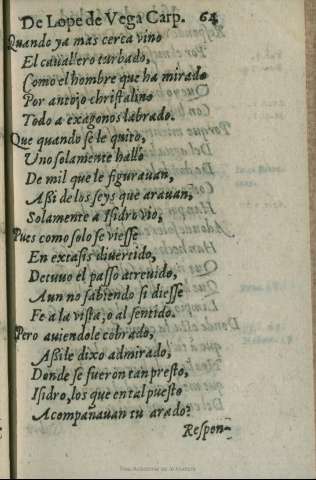 De Lope de Vega Carp. 64
Quando ya mas cerca vino
El cauallero turbado,
Como el hombre que ha mirado
Por antojo christalino
Todo a exagonos labrado.
Que quando se le quito,
Uno solamente hallò
De mil que le figurauan,
Assi de los seys que arauan,
Solamente a Isidro vio,
Pues como solo se viesse
En extasis diuertido,
Detuuo el passo atreuido,
Aun no sabiendo si diesse
Fe a la vista, o al sentido.
Pero auiendole cobrado,
Assi le dixo admirado,
Donde se fueron tan presto,
Isidro, los que en tal puesto
Acompañauan tu arado?
Respon-